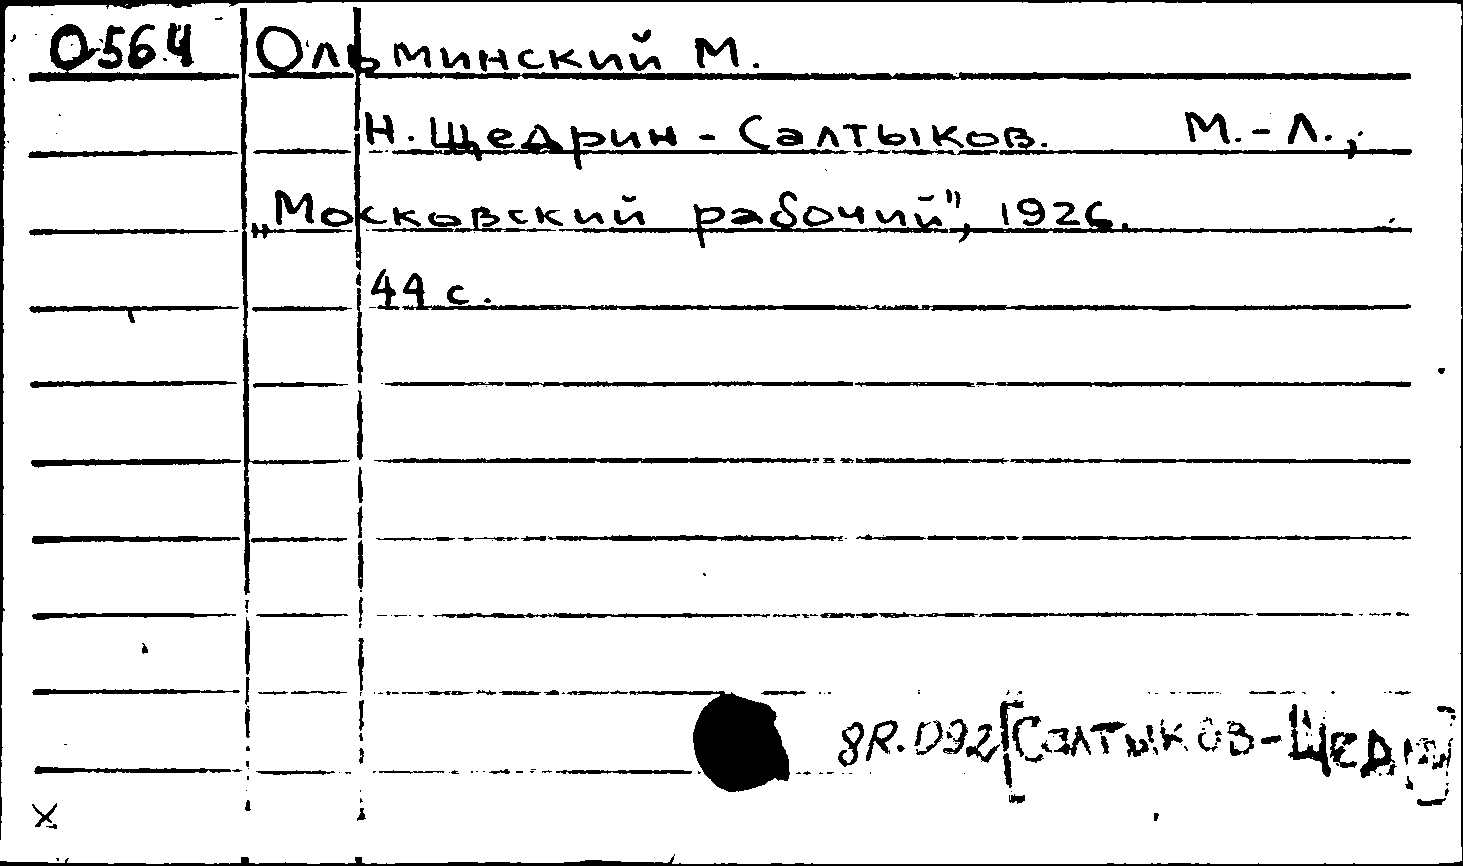 О-564 Ольминский М.
Н. Щедрин - Салтыков. М.-Л.,
„Московский рабочий", 1926.
44 с.
8R.092[Салтыков-Щедрин]
x